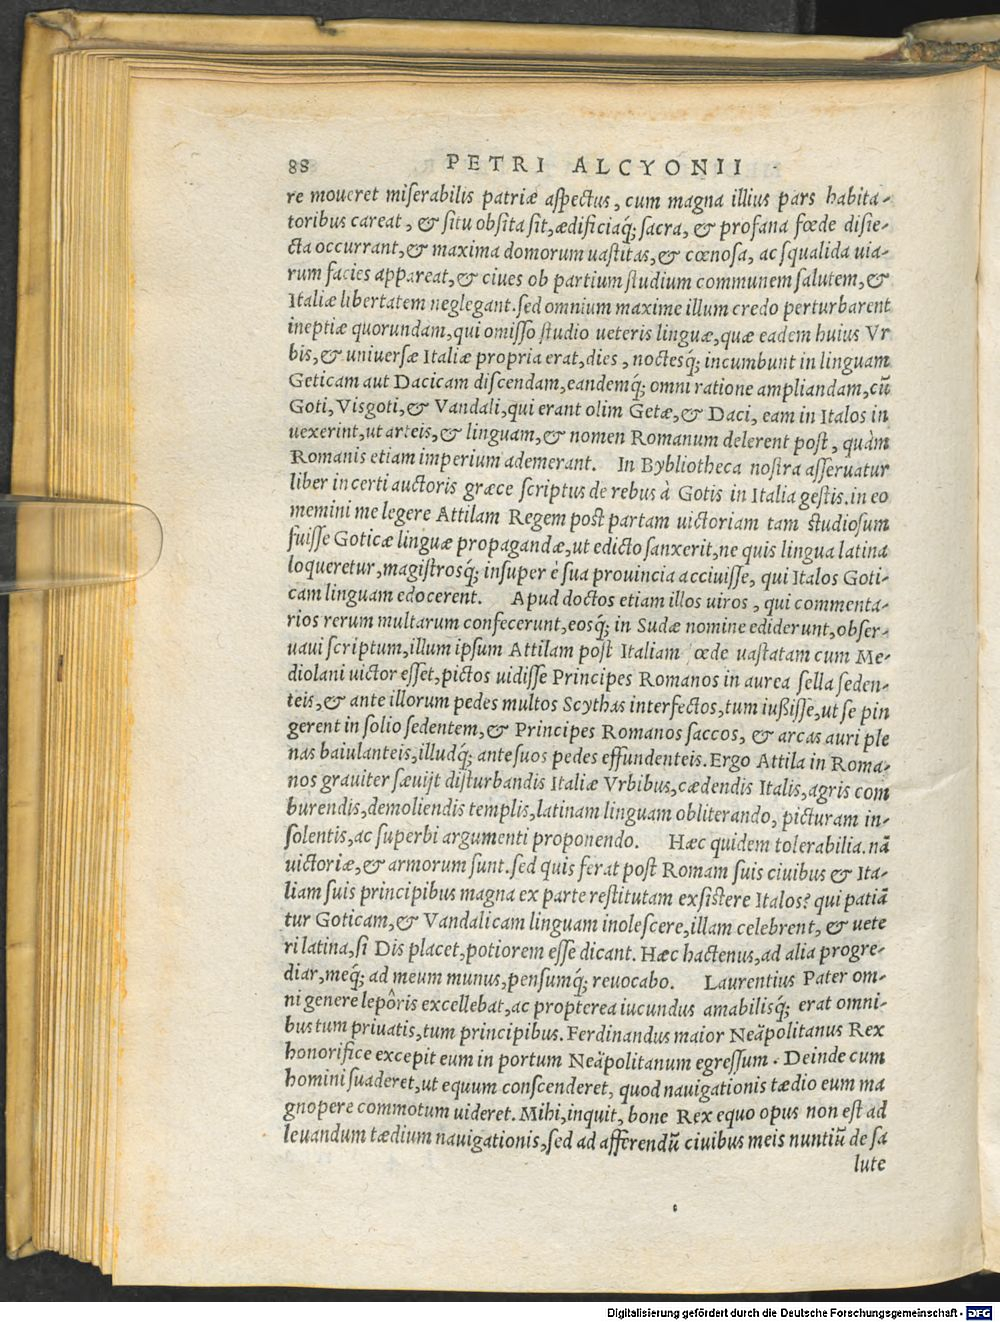 88 PETRI ALCYONII
re moueret miſerabilis patriæ aſpectus, cum magna illius pars habita-
toribus careat, & ſitu obſita ſit, ædificiaq́; ſacra, & profana fœde diſie-
cta occurrant, & maxima domorum uaſtitas, & cœnoſa, ac ſqualida uia-
rum facies appareat, & ciues ob partium ſtudium communem ſalutem, &
Italiæ libertatem neglegant. ſed omnium maxime illum credo perturbarent
ineptiæ quorundam, qui omiſſo ſtudio ueteris linguæ, quæ eadem huius Vr
bis, & uniuerſæ Italiæ propria erat, dies, noctesq́; incumbunt in linguam
Geticam aut Dacicam diſcendam, eandemq́; omni ratione ampliandam, cũ
Goti, Viſgoti, & Vandali, qui erant olim Getæ, & Daci, eam in Italos in
uexerint, ut arteis, & linguam, & nomen Romanum delerent poſt, quàm
Romanis etiam imperium ademerant. In Bybliotheca noſtra aſſeruatur
liber incerti auctoris græce ſcriptus de rebus à Gotis in Italia geſtis. in eo
memini me legere Attilam Regem poſt partam uictoriam tam ſtudioſum
fuiſſe Goticæ linguæ propagandæ, ut edicto ſanxerit, ne quis lingua latina
loqueretur, magiſtrosq́; inſuper è ſua prouincia acciuiſſe, qui Italos Goti-
cam linguam edocerent. Apud doctos etiam illos uiros, qui commenta-
rios rerum multarum confecerunt, eosq́; in Sudæ nomine ediderunt, obſer-
uaui ſcriptum, illum ipſum Attilam poſt Italiam fœde uaſtatam cum Me-
diolani uictor eſſet, pictos uidiſſe Principes Romanos in aurea ſella ſeden-
teis, & ante illorum pedes multos Scythas interfectos, tum iußiſſe, ut ſe pin
gerent in ſolio ſedentem, & Principes Romanos ſaccos, & arcas auri ple
nas baiulanteis, illudq́; ante ſuos pedes effundenteis. Ergo Attila in Roma-
nos grauiter ſæuijt diſturbandis Italiæ Vrbibus, cædendis Italis, agris com
burendis, demoliendis templis, latinam linguam obliterando, picturam in-
ſolentis, ac ſuperbi argumenti proponendo. Hæc quidem tolerabilia. nã
uictoriæ, & armorum ſunt. ſed quis ferat poſt Romam ſuis ciuibus & Ita-
liam ſuis principibus magna ex parte reſtitutam exſiſtere Italos? qui patiã
tur Goticam, & Vandalicam linguam inoleſcere, illam celebrent, & uete
ri latina, ſi Dis placet, potiorem eſſe dicant. Hæc hactenus, ad alia progre-
diar, meq́; ad meum munus, penſumq́; reuocabo. Laurentius Pater om-
ni genere lepôris excellebat, ac propterea iucundus amabilisq́; erat omni-
bus tum priuatis, tum principibus. Ferdinandus maior Neäpolitanus Rex
honorifice excepit eum in portum Neäpolitanum egreſſum. Deinde cum
homini ſuaderet, ut equum conſcenderet, quod nauigationis tædio eum ma
gnopere commotum uideret. Mihi, inquit, bone Rex equo opus non eſt ad
leuandum tædium nauigationis, ſed ad afferendũ ciuibus meis nuntiũ de ſa
lute
Digitalisierung gefördert durch die Deutsche Forschungsgemeinschaft - DFG